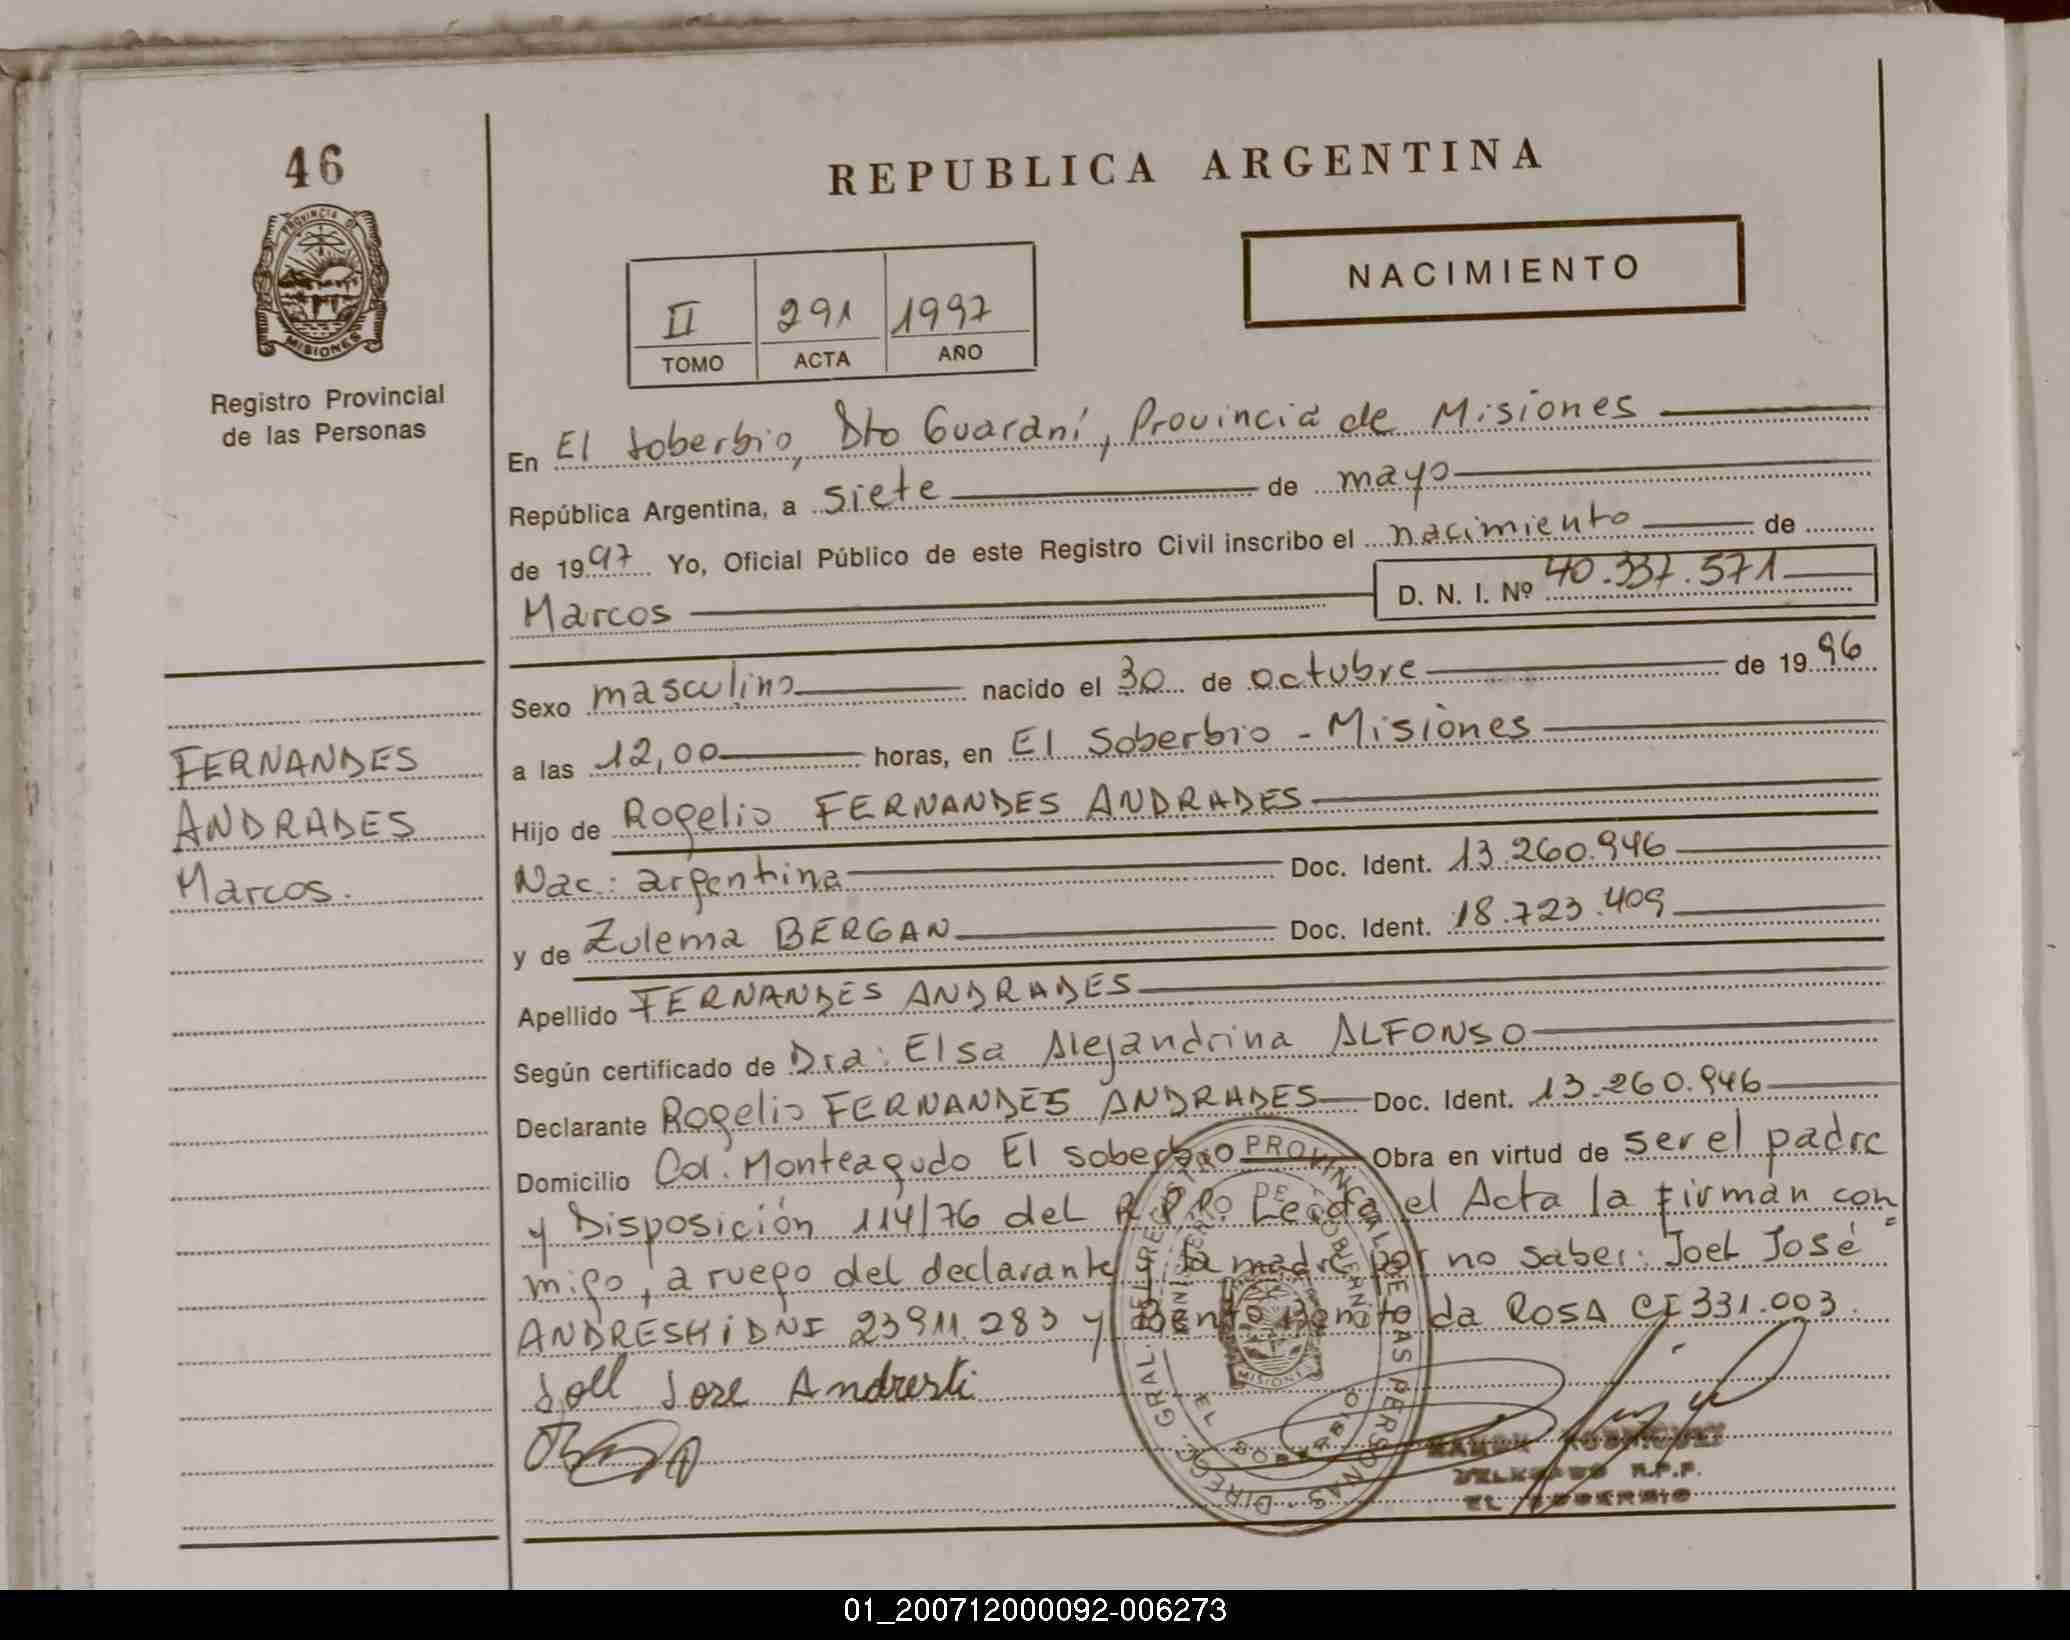 46
PROVINCIA DE
MISIONES
Registro Provincial
de las Personas
FERNANDES
ANDRADES
Marcos.
REPUBLICA ARGENTINA
NACIMIENTO
II 291 1997
TOMO ACTA AÑO
En El Soberbio, Dto Guaraní, Provincia de Misiones
República Argentina, a siete de mayo
de 1997 Yo, Oficial Público de este Registro Civil inscribo el nacimiento de
Marcos D. N. I. Nº 40.337.571
Sexo masculino nacido el 30 de octubre de 1996
a las 12,00 horas, en El Soberbio - Misiones
Hijo de Rogelio FERNANDES ANDRADES
Nac.: argentina Doc. Ident. 13.260.946
y de Zulema BERGAN Doc. Ident. 18.723.409
Apellido FERNANDES ANDRADES
Según certificado de Dra: Elsa Alejandrina ALFONSO
Declarante Rogelio FERNANDES ANDRADES Doc. Ident. 13.260.946
Domicilio Col. Monteagudo El Soberbio Obra en virtud de ser el padre
y Disposición 114/76 del R.P.P. Leída el Acta la firman con
migo, a ruego del declarante y la madre por no saber: Joel José
ANDRESKI DNI 23911.283 y Bento Benito da ROSA CI 331.003.
Joel Jose Andreski
DIRECC. GRAL. DEL REGISTRO PROVINCIAL DE LAS PERSONAS
MINISTERIO DE GOBIERNO
EL SOBERBIO
MISIONES
R.P.P.
EL SOBERBIO
01_200712000092-006273